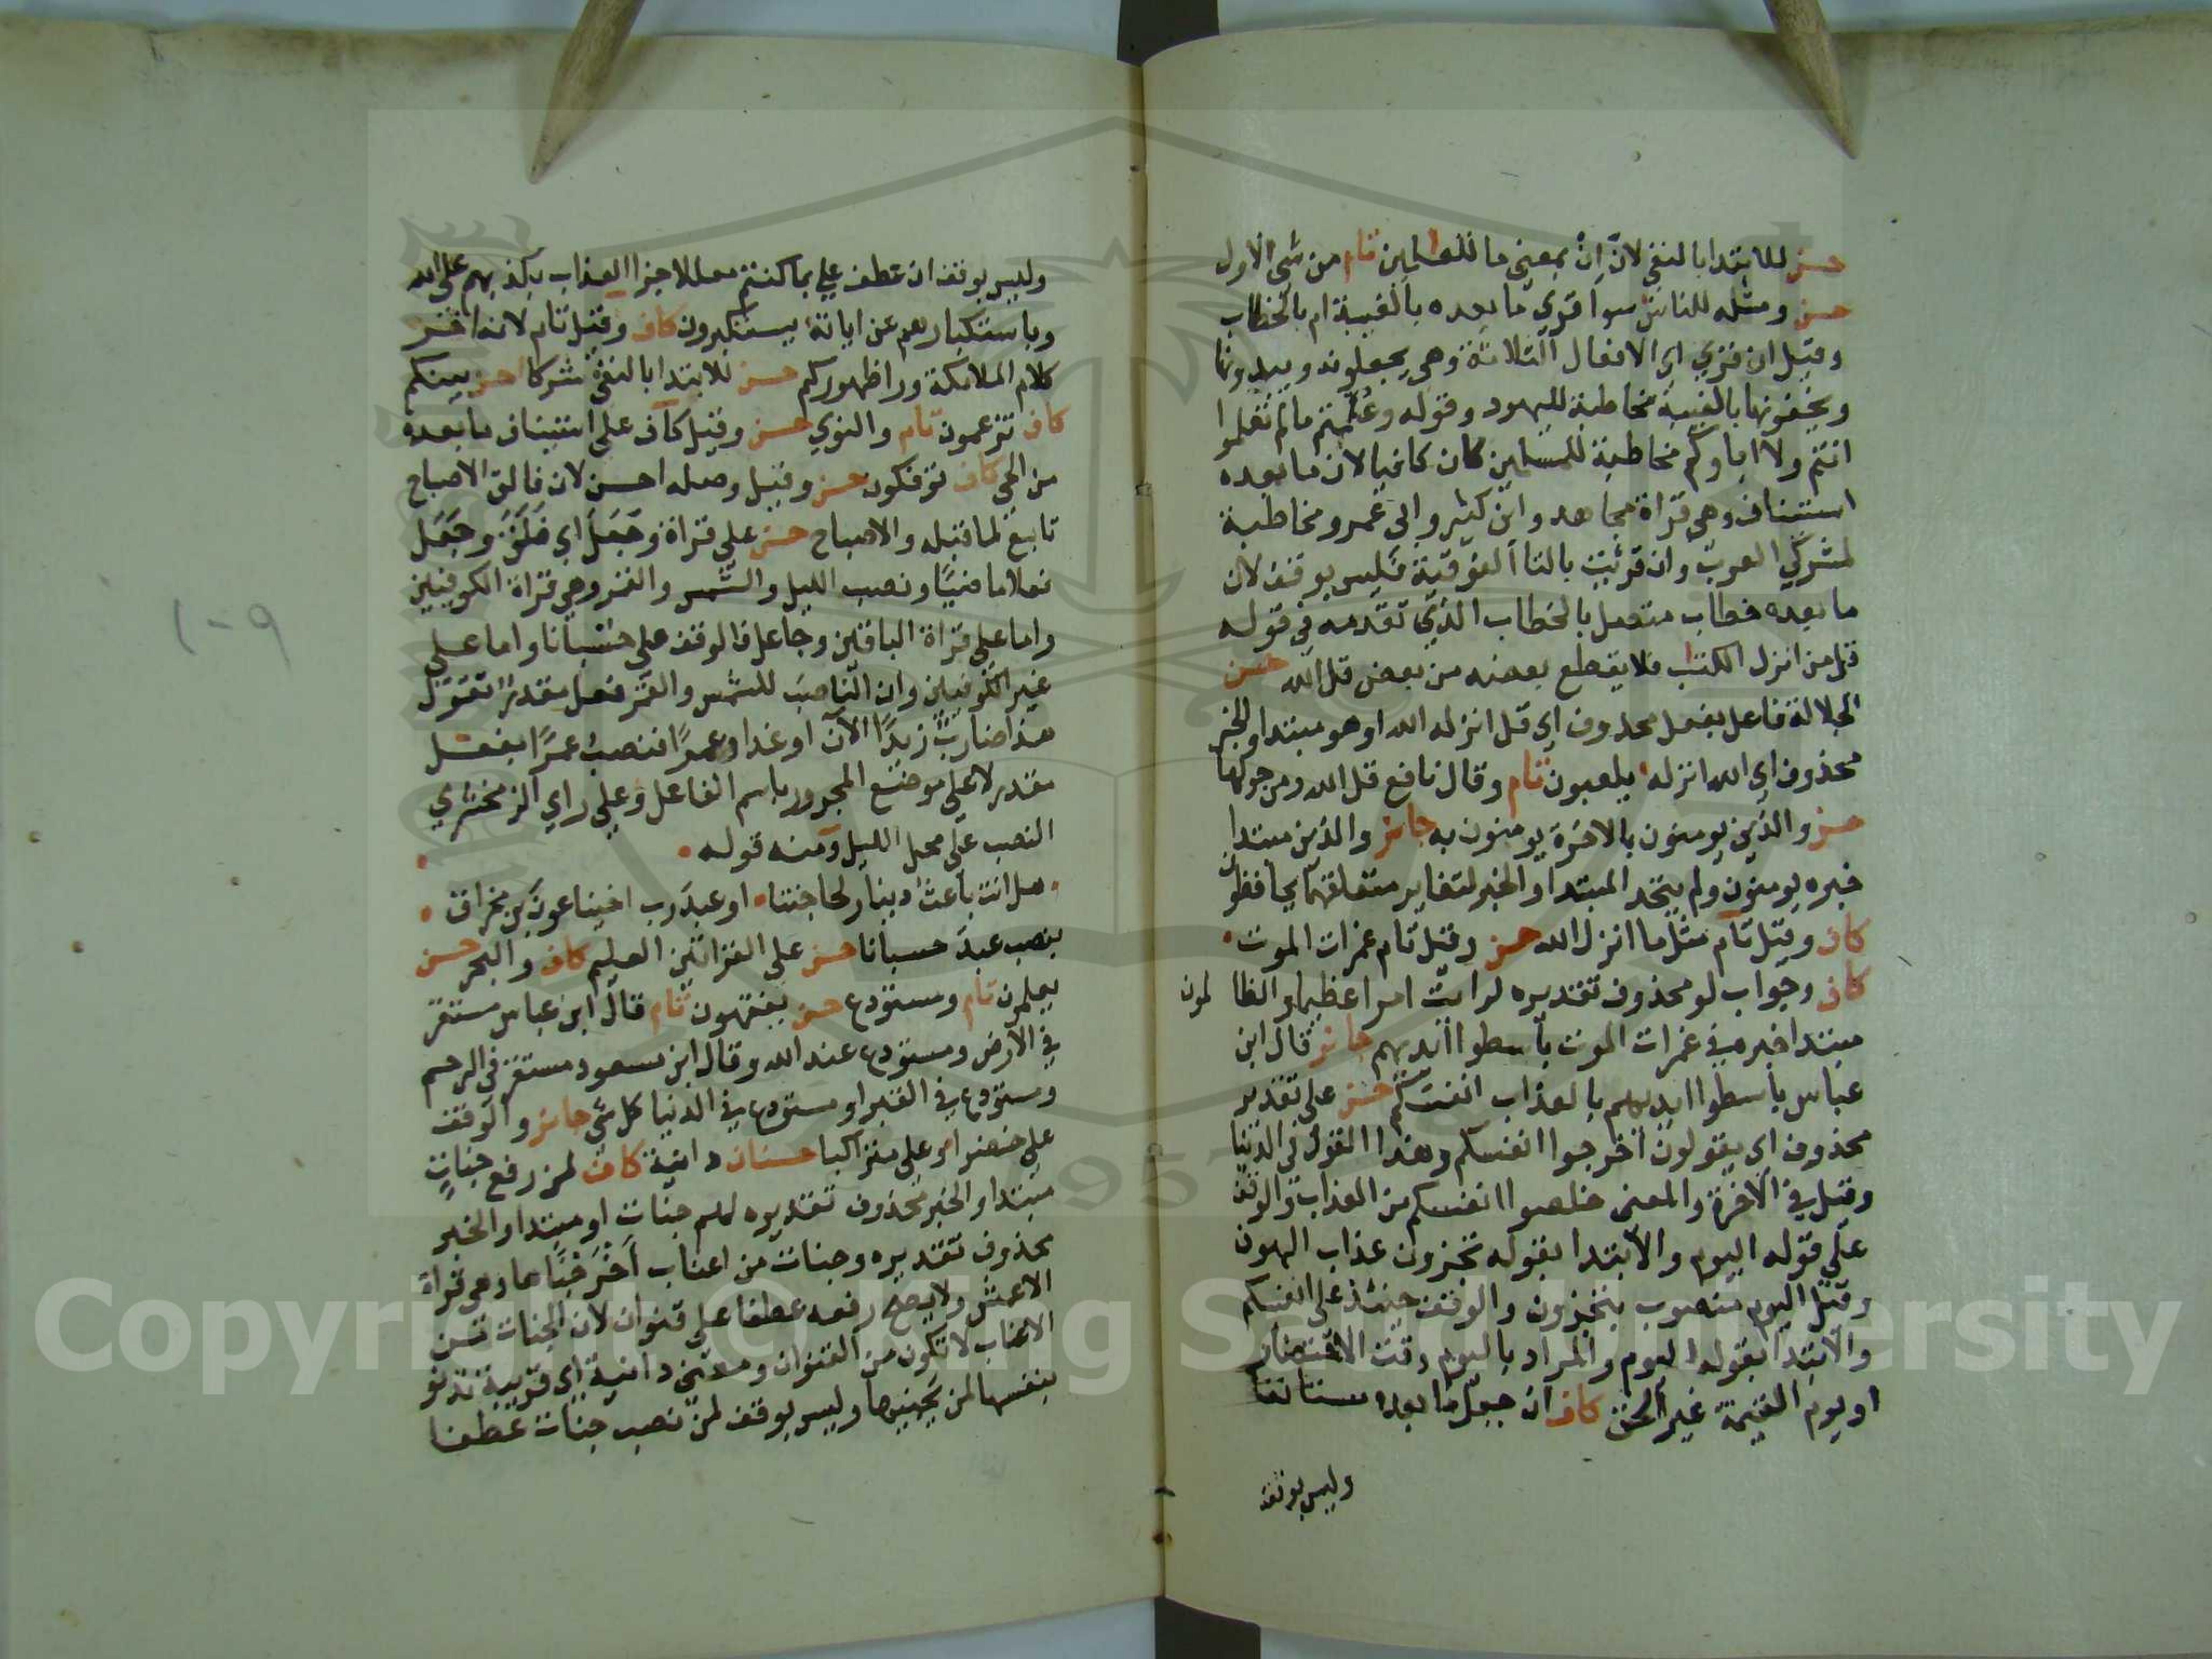 حسن للابتدا بالنفي لان ان بمعنى ما للعلمين تام من شى الاول
حسن ومثله للناس سوا قرى ما بعده بالغيبة ام بالخطاب
وقيل ان قرى اى الافعال الثلاثة وهى يجعلونه ويبدونها
ويخفونها بالغيبة مخاطبة لليهود وقوله وعلمتم مالم تعلموا
انتم ولا اباوكم مخاطبة للمسلمين كان كافيا لان ما بعده
استيناف وهى قراة مجاهد وابن كثير وابى عمرو مخاطبة
لمشركي العرب وان قرئت بالتا الفوقية فليس بوقف لان
ما بعده خطاب متصل بالخطاب الذي تقدمه في قوله
قل من انزل الكتب فلا يقطع بعضه من بعض قل الله حسن
الجلالة فاعل بفعل محذوف اي قل انزله الله او هو مبتدا والخبر
محذوف اي الله انزله يلعبون تام وقال نافع قل الله ومن حولها
حسن والذين يومنون بالاخرة يومنون به جائز والذين مبتدا
خبره يومنون ولم يتحد المبتدا والخبر لتغاير متعلقهما يحافظون
كاف وقيل تام مثل ما انزل الله حسن وقيل تام غمرات الموت
كاف وجواب لو محذوف تقديره لرايت امرا عظيما والظا لمون
مبتدا خبره في غمرات الموت باسطوا ايديهم جائز قال ابن
عباس باسطوا ايديهم بالعذاب انفسكم حسن على تقدير
محذوف اي يقولون اخرجوا انفسكم وهذا القول في الدنيا
وقيل في الاخرة والمعنى خلصوا انفسكم من العذاب والوقف
على قوله اليوم والابتدا بقوله تجزون عذاب الهون
وقيل اليوم منصوب بتجزون والوقف حينئذ على انفسكم
والابتدا بقوله اليوم والمراد باليوم وقت الاحتضار
او يوم القيمة غير الحق كاف ان جعل ما بعده مستانفا
وليس بوقف
وليس بوقف ان عطف على بما كنتم معللا جزا العذاب بكذبهم على الله
وباستكبارهم عن اياته يستكبرون كاف وقيل تام لانه اخر
كلام الملائكة ورا ظهوركم حسن للابتدا بالنفي شركا حسن بينكم
كاف تزعمون تام والنوى حسن وقيل كاف على استيناف ما بعده
من الحي كاف توفكون حسن وقيل وصله احسن لان فالق الاصباح
تابع لما قبله والاصباح حسن على قراة وجعل اي فلق وجعل
فعلا ماضيا ونصب الليل والشمس والقمر وهي قراة الكوفيين
واما على قراة الباقين وجاعل فالوقف على حسبانا واما على
غير الكوفيين وان الناصب للشمس والقمر فعل مقدر تقول
هذا ضارب زيدا الان او غدا وعمرا فنصب عمرا بفعل
مقدر لا على موضع المجرور باسم الفاعل وعلى راي الزمخشري
النصب على محل الليل ومنه قوله
هل انت باعث دينار لحاجتنا او عبد رب اخينا عون بن مخراق
بنصب عبد حسبانا حسن على القراتين العليم كاف والبحر حسن
يعلمون تام ومستودع حسن يفقهون تام قال ابن عباس مستقر
في الارض ومستودع عند الله وقال ابن مسعود مستقر في الرحم
ومستودع في القبر او مستودع في الدنيا كل شي جائز والوقف
على خضرا او على متراكبا حسنان دانية كاف لمن رفع جنات
مبتدا والخبر محذوف تقديره لهم جنات او مبتدا والخبر
محذوف تقديره وجنات من اعناب اخرجناها وهى قراة
الاعمش ولا يصح رفعه عطفا على قنوان لان الجنات من
الاعناب لا تكون من القنوان ومعنى دانية اي قريبة تدنو
بنفسها لمن يجنيها وليس بوقف لمن نصب جنات عطفا
١٠٩
Copyright © King Saud University
1957